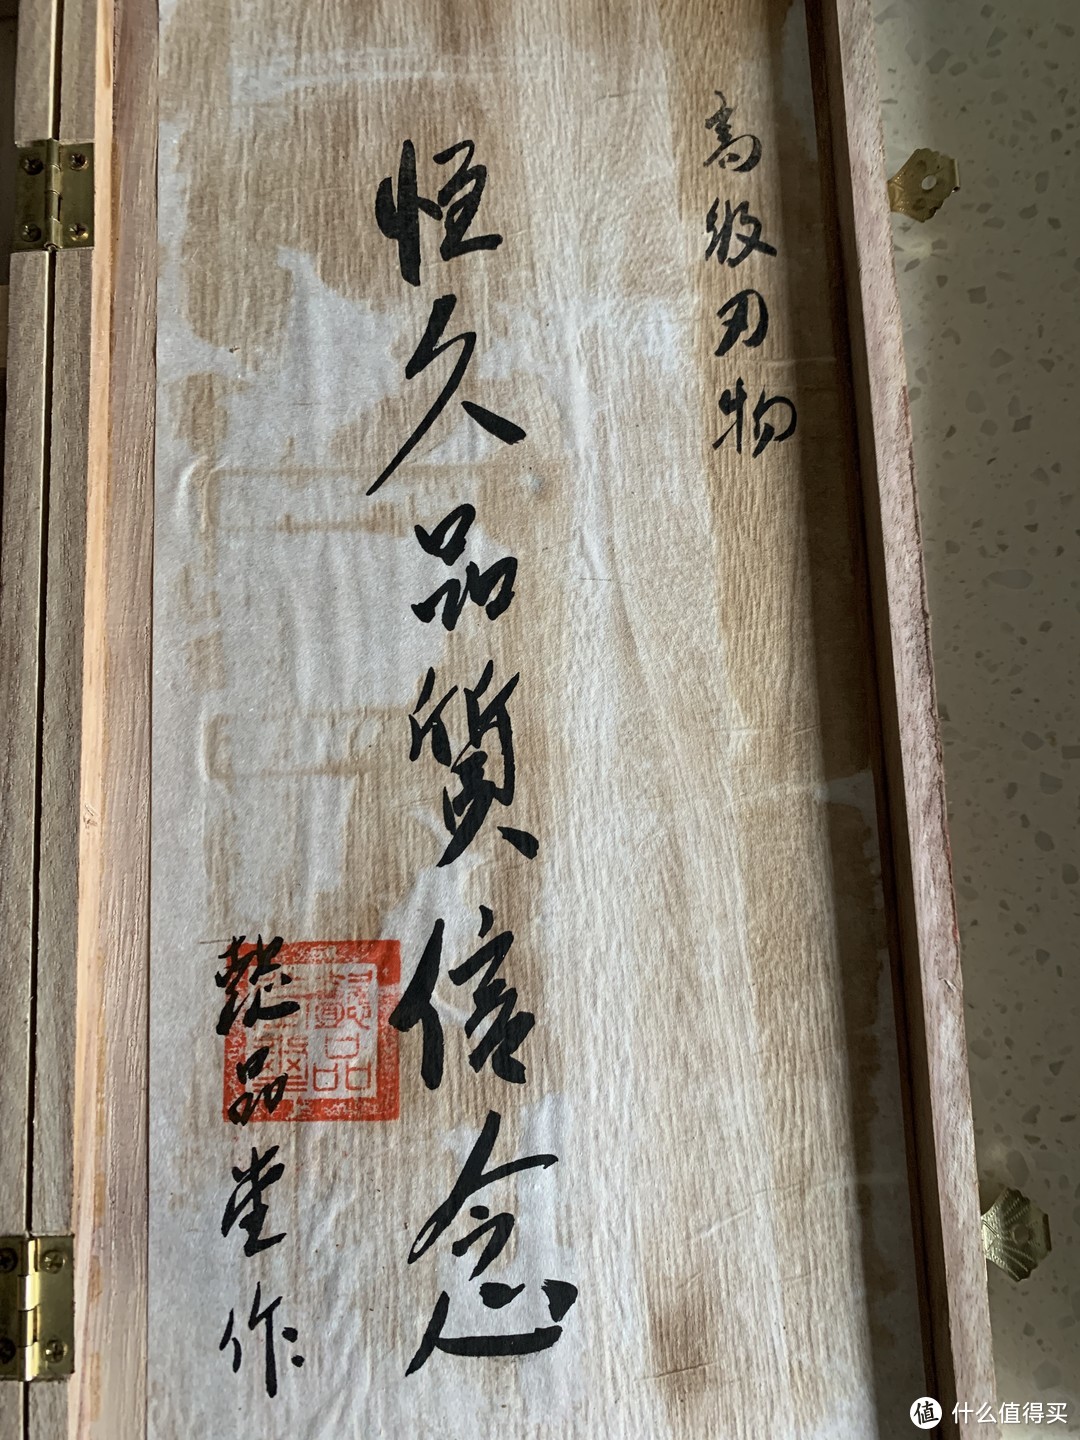 高级刃物
恒久品質信念
懿品堂作
值 什么值得买